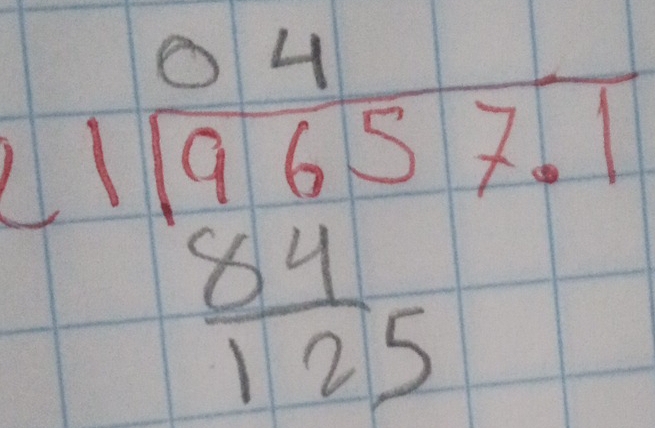 04
21|9657.1
84
125